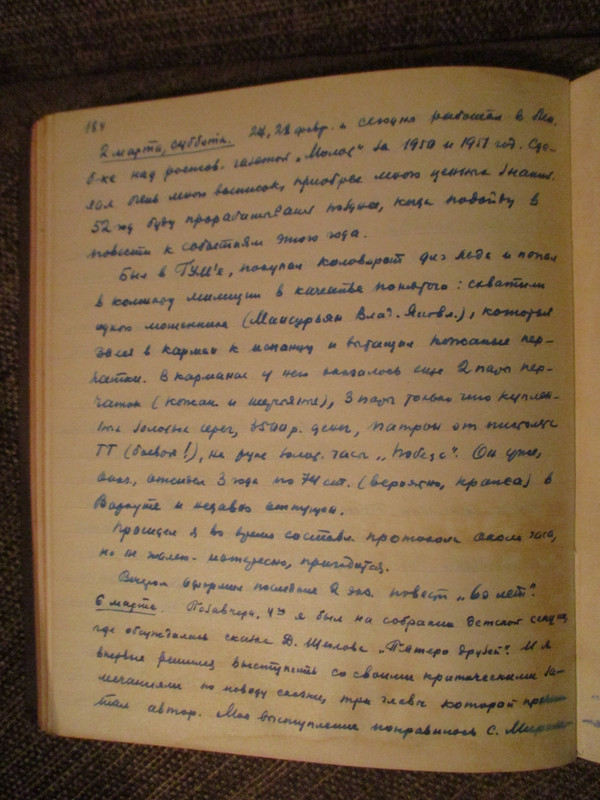 184
2 марта, суббота. 27, 28 февр. и сегодня работал в
б-ке над ростов. газетой „Молот“ за 1950 и 1951 год. Сде-
лал очень много выписок, приобрел много ценных знаний.
52 год буду прорабатывать позднее, когда подойду в
повести к событиям этого года.
Был в ГУМ'е, покупал коловорот для льда и попал
в комнату милиции в качестве понятого: схватили
одного мошенника (Мансурьян Влад. Яковл.), который
залез в карман к испанцу и вытащил кожаные пер-
чатки. В карманах у него оказалось еще 2 пары пер-
чаток (кожан. и шерстяные), 3 пары только что куплен-
ных золотых серег, 3500 р. денег, патрон от пистолета
ТТ (боевой!), на руке золот. часы „Победа“. Он уже,
оказ., отсидел 3 года по 74 ст. (вероятно, кража) в
Воркуте и недавно отпущен.
Просидел я во время составл. протокола около часа,
но не жалею - интересно, пригодится.
Вечером оформил последние 2 экз. повести „60 лет“.
6 марта. Позавчера, 4го я был на собрании детской секции,
где обсуждалась сказка Д. Щеглова „Пятеро друзей“. И я
впервые решился выступить со своими критическими за-
мечаниями по поводу сказки, три главы которой
тал автор. Мое выступление понравилось С.